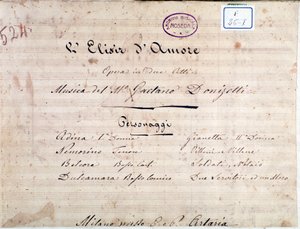 524
L'Elisir d'Amore
Opera in Due Atti
Musica del Mo Gaetano Donizetti
Personaggi
Adina 1a Donna Gianetta 2a Donna
Nemorino Tenore Villani e Villane
Belcore Basso Soldati, Notaio
Dulcamara Basso Comico Due Servitori, ed un Moro
Milano presso Artaria